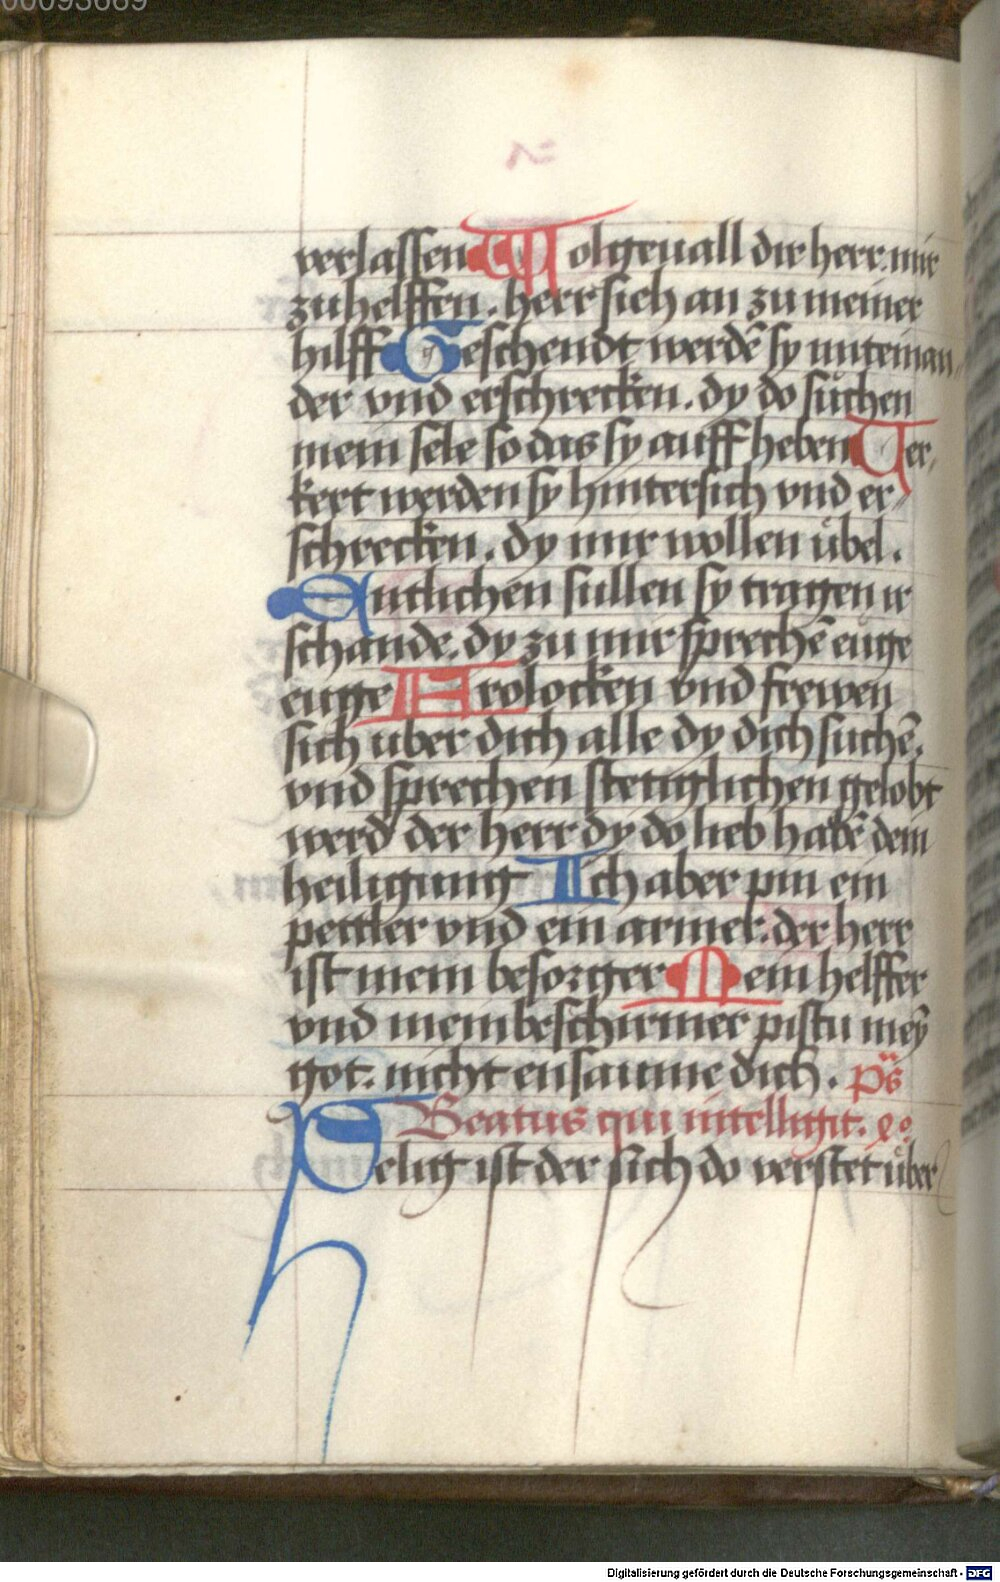 00093669
verlassen Wolgeuall dir herr. mir
zu helffen. herr sich an zu meiner
hilff Geschendt werdē sy miteinan
der vnd erschrecken. dy do sůchen
mein sele so das sy auff heben Ver
kert werden sy hintersich vnd er
schrecken. dy mir wollen ůbel.
Antlichen sullen sy tragen ir
schande. dy zu mir sprechē euge
euge Frolocken vnd frewen
sich uber dich alle dy dich suchē.
vnd sprechen stetiglichen gelobt
werd der herr dy do lieb habē dein
heiligung Ich aber pin ein
pettler vnd ein armer. der herr
ist mein besorger Mein helffer
vnd mein beschirmer pistu mey̅
got. nicht ensaume dich. ps
Beatus qui intelligit. xl
Selig ist der sich do verstet ůber
Digitalisierung gefördert durch die Deutsche Forschungsgemeinschaft - DFG